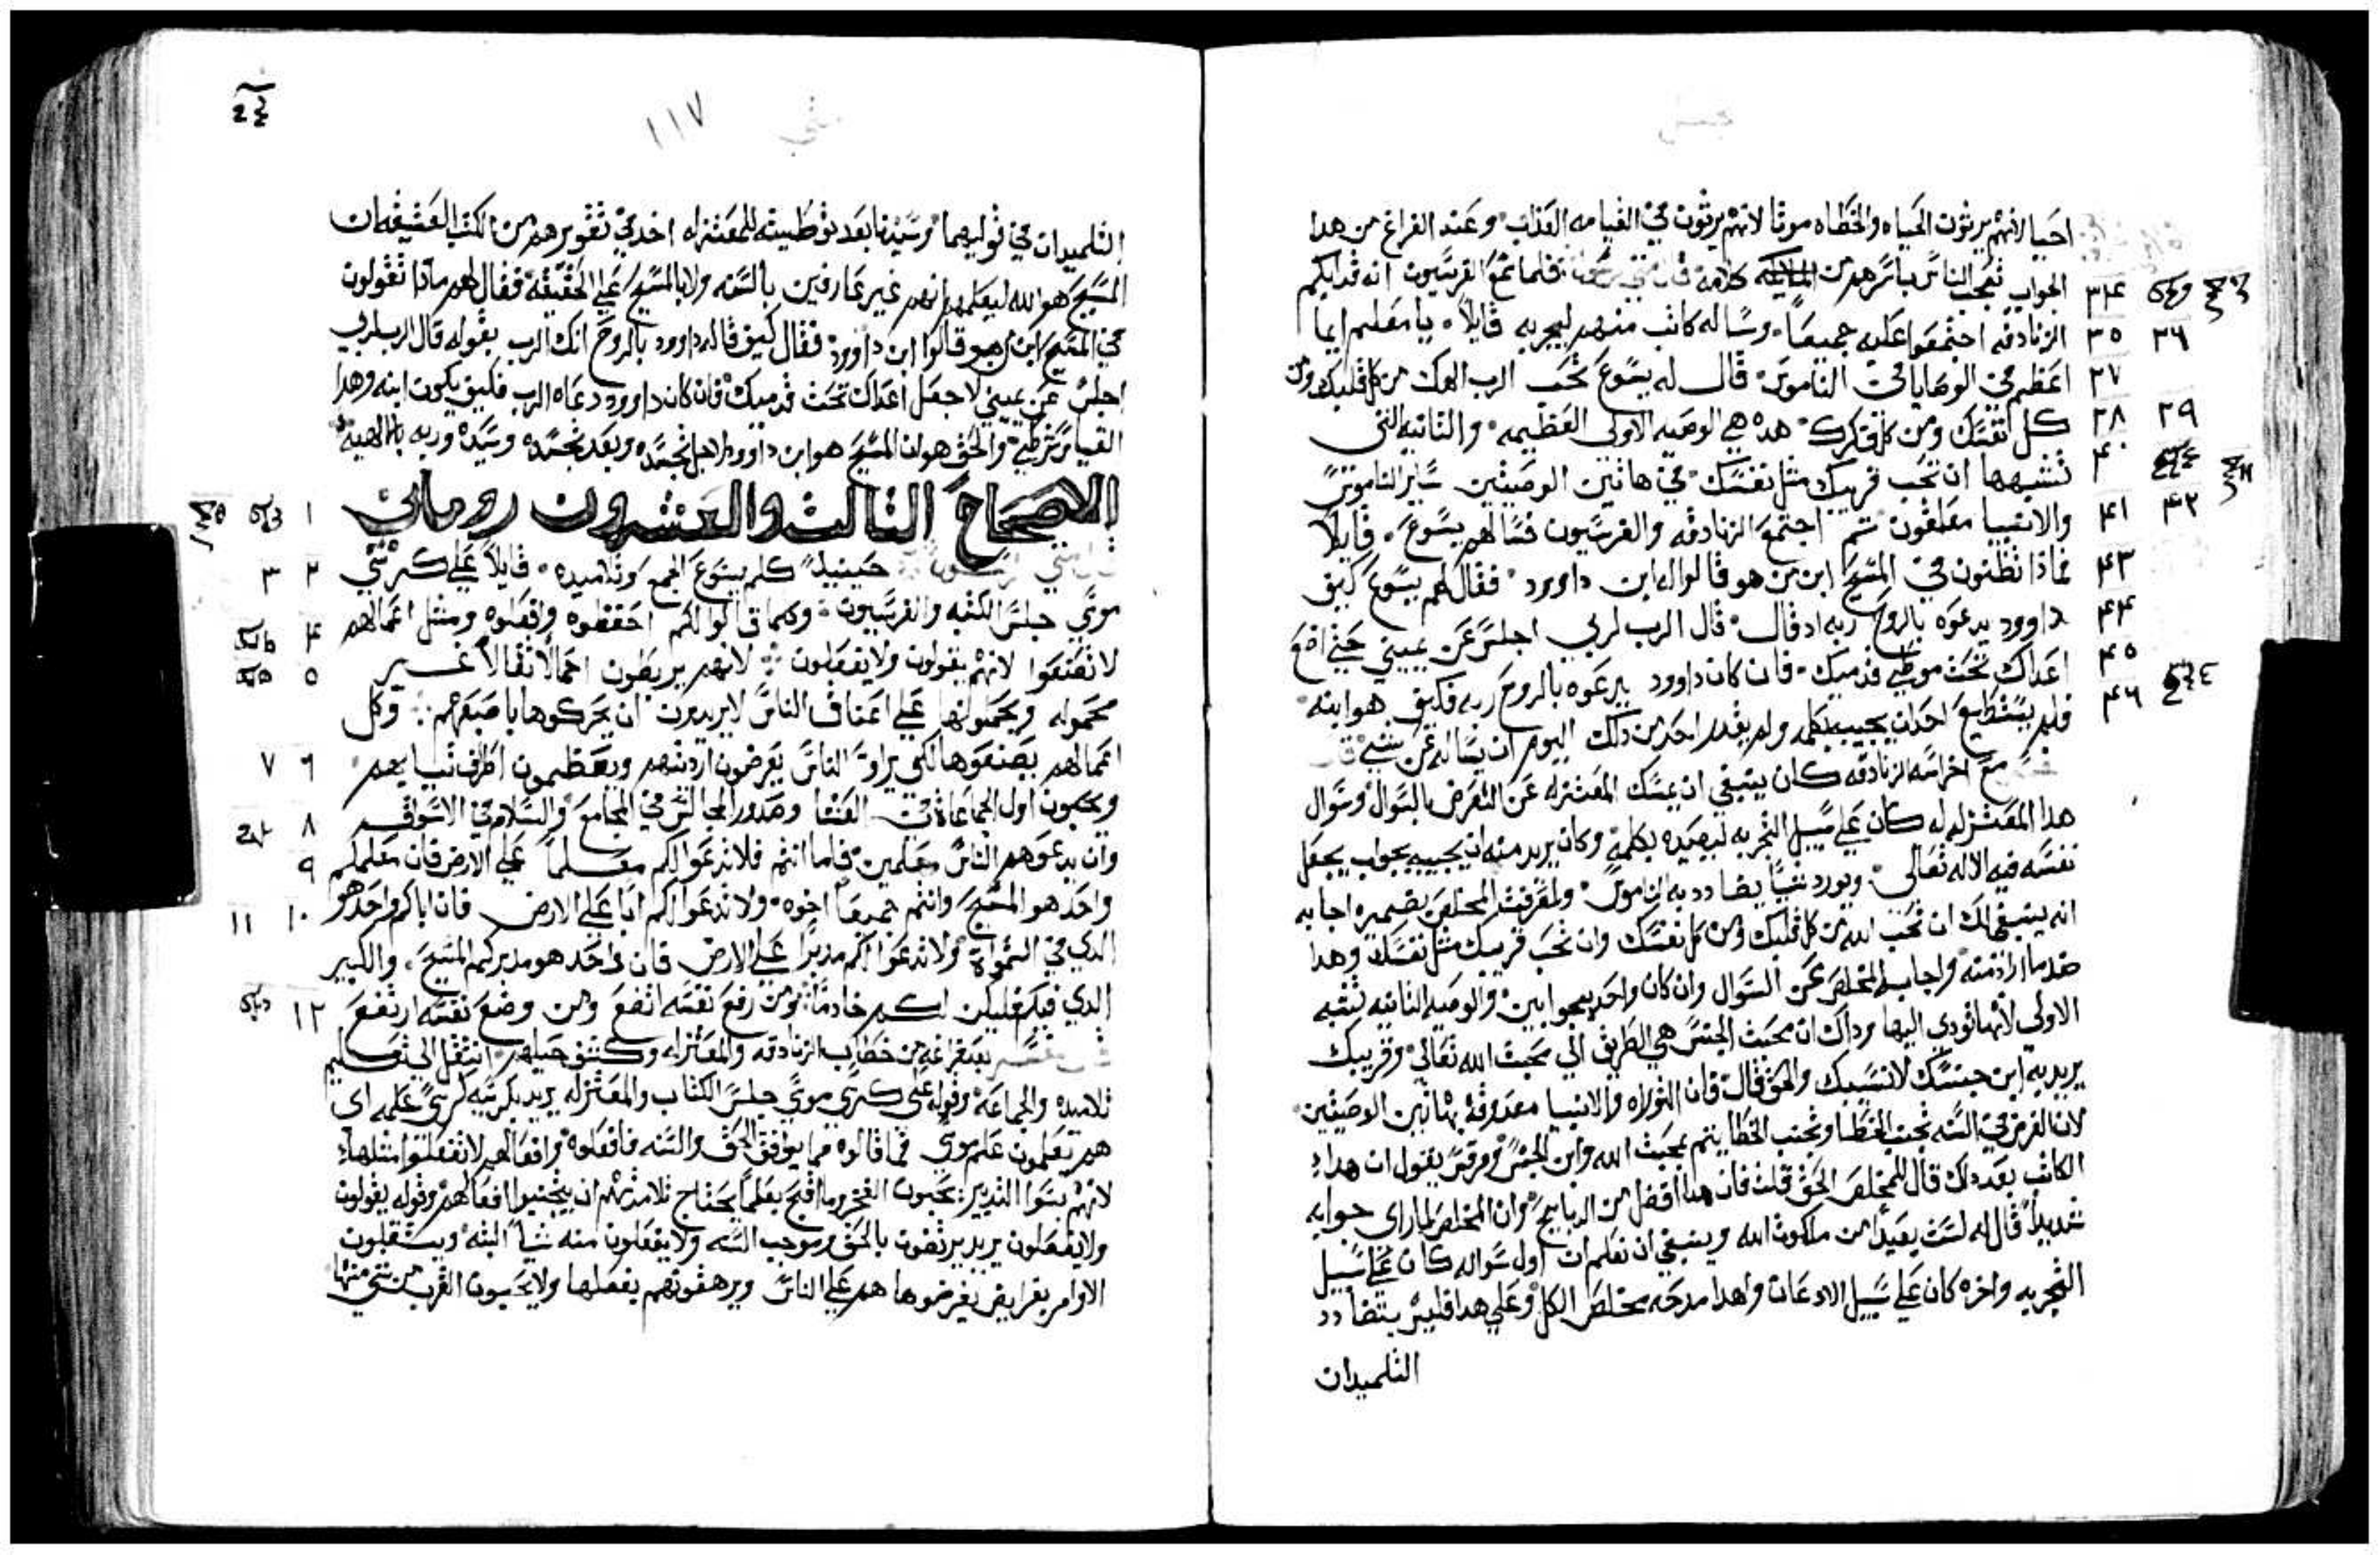 احيا لانهم يرثون الحياه والخطاه موتا لانهم يرثون في القيامه العذاب وعند الفراغ من هدا
الجواب تعجب الناس باسرهم من كلامه فلما سمع الفريسيون انه قد ابكم
الزنادقه اجتمعوا عليه جميعا وساله كاتب منهم ليجربه قايلا يا معلم ايما
اعظم في الوصايا في الناموس قال له يسوع تحب الرب الهك من كل قلبك ومن
كل نفسك ومن كل فكرك هده هي الوصيه الاولي العظيمه والتانيه التي
تشبهها ان تحب قريبك مثل نفسك في هاتين الوصيتين ساير الناموس
والانبيا معلقون تم اجتمع الزنادقه والفريسيون فسالهم يسوع قايلا
مادا تظنون في المسيح ابن من هو قالوا له ابن داوود فقال لهم يسوع كيف
داوود يدعوه بالروح ربه اد قال قال الرب لربي اجلس عن يميني حتي اضع
اعداك تحت موطي قدميك فان كان داوود يدعوه بالروح ربه فكيف هو ابنه
فلم يستطيع احد ان يجيبه بكلمه ولم يقدر احد من دلك اليوم ان يساله عن شي
مع اخراسه الزنادقه كان ينبغي ان يمسك المعتزله عن التعرض بالسوال وسوال
هدا المعتزلي له كان علي سبيل التجربه ليصيده بكلمه وكان يريد منه ان يجيبه بجواب يجعل
نفسه فيه الاله تعالي ويورد شيا يضادد به الناموس ولمعرفت المخلص بضميره اجابه
انه ينبغي لك ان تحب الله من كل قلبك ومن كل نفسك وان تحب قريبك مثل نفسك وهدا
ضد ما اراد منه واجاب المخلص عن السوال وان كان واحد بجوابين والوصيه التانيه تشبه
الاولي لانها تودي اليها وداك ان محبت الجنس هي الطريق الي محبت الله تعالي وقريبك
يريد به ابن جنسك لا نسيبك والحق قال فان التوراه والانبيا معدوقة بهاتين الوصيتين
لان الغرض في السنه تجنب الخطا وتجنب الخطا يتم بمحبت الله وابن الجنس ومرقس يقول ان هدا
الكاتب بعد دلك قال للمخلص الحق قلت فان هدا افضل من الدبايح وان المخلص لما راي جوابه
شديدا قال له لست بعيدا من ملكوت الله وينبغي ان نعلم ان اول سواله كان علي سبيل
التجربه واخره كان علي سبيل الادعان ولهدا مدحه مخلص الكل وعلي هدا فليس يتضادد
التلميدان
١١٧
متي
التلميدان في قوليهما وسيدنا بعد توطيته للمعتزله اخد في تقويرهم من الكتب العتيقه ان
المسيح هو الله ليعلمهم انهم غير عارفين بالسنه ولا بالمسيح علي الحقيقه فقال لهم مادا تقولون
في المسيح ابن من هو قالوا ابن داوود فقال كيف قال داوود بالروح انك الرب بقوله قال الرب لربي
اجلس عن يميني لاجعل اعداك تحت قدميك فان كان داوود دعاه الرب فكيف يكون ابنه وهدا
القياس شرطي والحق هو ان المسيح هو ابن داوود لاجل تجسده وبعد تجسده وسيده وربه بالالهية
الاصحاح التالت والعشرون روماني
حينيد كلم يسوع الجمع وتلاميده قايلا علي كرسي
موسي جلس الكتبه والفريسيون وكلما قالوا لكم احفظوه وافعلوه ومثل اعمالهم
لا تصنعوا لانهم يقولون ولا يفعلون لانهم يربطون احمالا ثقالا غير
محموله ويحملونها علي اعناق الناس لا يريدون ان يحركوها باصبعهم وكل
اعمالهم يصنعوها لكي يراوا الناس يعرضون ارديتهم ويعظمون اطراف تيابهم
ويحبون اول الجماعات في العشا وصدور المجالس في المجامع والسلام في الاسواق
وان يدعوهم الناس معلمين فاما انتم فلا تدعوا لكم معلما علي الارض فان معلمكم
واحد هو المسيح وانتم جميعا اخوه ولا تدعوا لكم ابا علي الارض فان اباكم واحد هو
الدي في السموات ولا تدعوا لكم مدبرا علي الارض فان واحد هو مدبركم المسيح والكبير
الدي فيكم فليكن لكم خادما ومن رفع نفسه اتضع ومن وضع نفسه ارتفع
بعد فراغه من خطاب الزنادقه والمعتزله وكشف حيلهم انتقل الي تعليم
تلاميده والجماعة وقوله علي كرسي موسي جلس الكتاب والمعتزله يريد بكرسيه كرسي علمه اي
هم يعلمون علم موسي فما قالوه مما يوافق الحق والسنه فافعلوه وافعالهم لا تفعلوا مثلها
لانهم يسوا التدبير يحبون الفخر وما اقبح بمعلم يحتاج تلامدته ان يتجنبوا افعالهم وقوله يقولون
ولا يفعلون يريد يرتضون بالحق وموجب السنه ولا يفعلون منه شيا البته ويستقلون
الاوامر بفرايض يفرضوها هم علي الناس ويرهقونهم بفعلها ولا يحبون القرب من شي منها